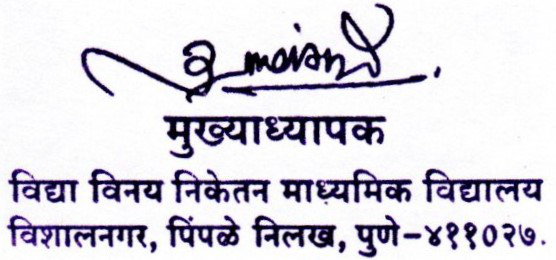 मुख्याध्यापक
विद्या विनय निकेतन माध्यमिक विद्यालय
विशालनगर, पिंपळे निलख, पुणे-४११०२७.